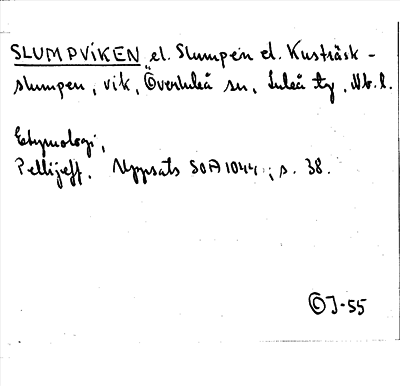 SLUMPVIKEN el. Slumpen el. Kusträsk-
slumpen, vik, Överluleå sn, Luleå tg, Nb. l.
Etymologi,
Pellijeff, Uppsats SOA 1044, s. 38.
© J-55